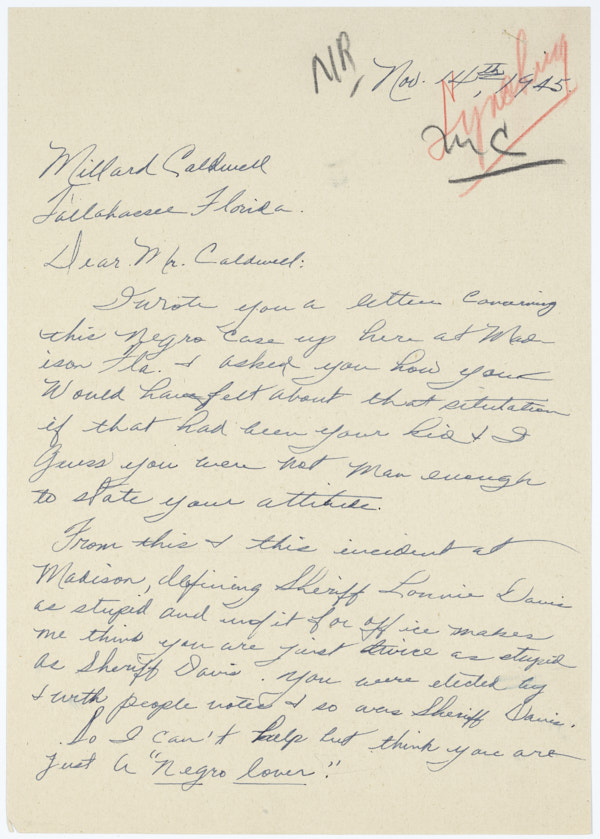 NR,
Nov. 14th, 1945.
Lynching
Millard Caldwell
Tallahassee Florida.
Dear Mr. Caldwell:
I wrote you a letter concerning
this negro case up here at Mad-
ison Fla. & asked you how you
Would have felt about that situlation
if that had been your kid & I
Guess you were not man enough
to state your attitude.
From this & this incident at
Madison, defining Sheriff Lonnie Davis
as stupid and unfit for office makes
me think you are just twice as stupid
as Sheriff Davis. You were elected by
& with people votes & so was Sheriff Davis.
So I can't help but think you are
just a "Negro lover".